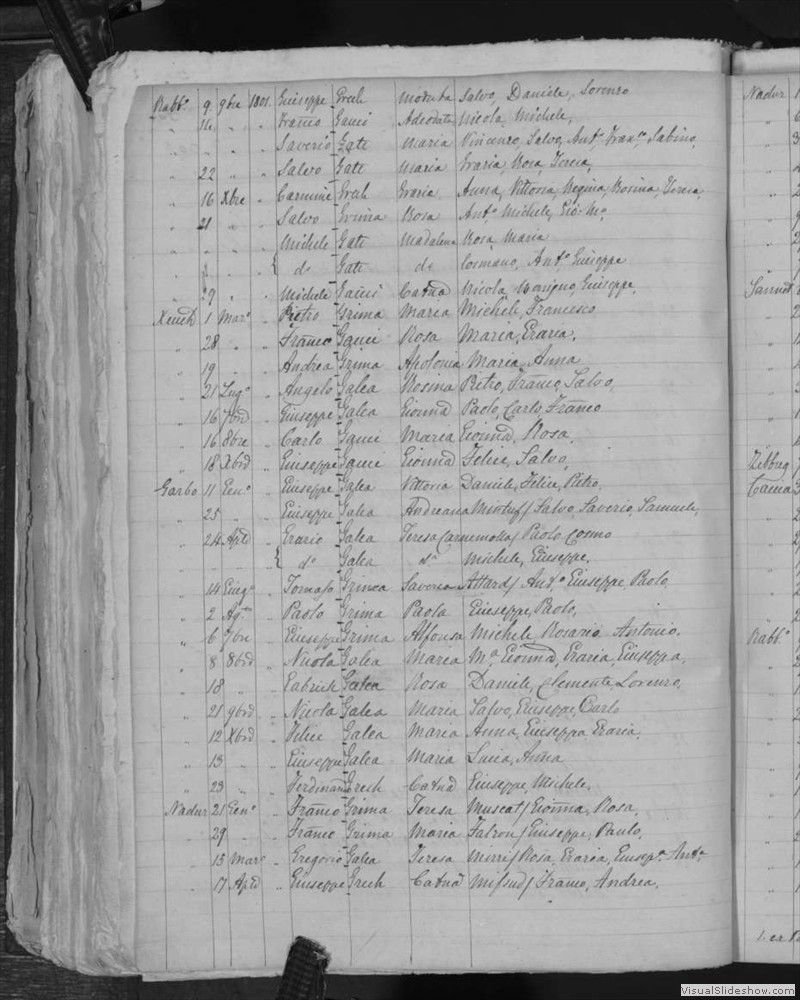 Rabbᵒ 9 9bre 1801 Giuseppe Grech Modesta Salvo, Daniele, Lorenzo
" 14 " " Franco Gauci Adeodata Nicola, Michele,
" " " " Saverio Gatt Maria Vincenzo, Salvo, Antᵒ Franᶜᵒ Sabino,
" 22 " " Salvo Gatt Maria Grazia, Rosa, Teresa,
" 16 Xbre " Carmine Grech Grazia Anna, Vittoria, Regina, Rosina, Teresa,
" 21 " " Salvo Grima Rosa Antᵒ Michele, Gio Mᵃ
" " " " Michele Gatt Madalena Rosa Maria
" " " { dᵒ Gatt dᵃ Cosmano, Antᵒ Giuseppe
" 29 " " Michele Gauci Catnd Nicola, Giuseppe,
Xeuch 1 Marᵒ " Pietro Grima Maria Michele, Francesco
" 28 " " Franco Gauci Rosa Maria, Grazia,
" 19 " " Andrea Grima Apolonia Maria, Anna
" 21 Lugᵒ " Angelo Galea Rosina Pietro, Franco, Salvo,
" 16 7brd " Giuseppe Galea Gionnd Paolo, Carlo, Franco
" 16 8bre " Carlo Gauci Maria Gionnd, Rosa,
" 18 Xbrd " Giuseppe Gauci Gionnd Felice, Salvo,
Garbo 11 Genᵒ " Giuseppe Galea Vittoria Daniele, Felice, Pietro,
" 25 " " Giuseppe Galea Andreana Mintuf/ Salvo, Saverio, Samuele,
" 24 Apld " Grazio Galea Teresa Carnemolla/ Paolo, Cosmo
" " " { dᵒ Galea dᵃ Michele, Giuseppe,
" 14 Giugᵒ " Tomaso Grimea Saveria Attard/ Antᵒ Giuseppe, Paolo,
" 2 Agᵗᵒ " Paolo Grima Paola Giuseppe, Paolo,
" 6 7bre " Giuseppe Grima Alfonsa Michele Rosario Antonio.
" 8 8brd " Nicola Galea Maria Mᵃ Gionnd, Grazia, Giuseppa,
" 18 " " Gabriele Galea Rosa Daniele, Clemente, Lorenzo,
" 21 9brd " Nicola Galea Maria Salvo, Giuseppe, Carlo
" 12 Xbrd " Felice Galea Maria Anna, Giuseppa Grazia,
" 13 " " Giuseppe Galea Maria Luca, Anna
" 23 " " Ferdinando Grech Catnd Giuseppe, Michele,
Nadur 21 Genᵒ " Franco Grima Teresa Muscat/ Gionna, Rosa,
" 29 " " Franco Grima Maria Falzon/ Giuseppe, Paulo,
" 15 Marᵒ " Gregorio Galea Teresa Rosa, Grazia, Giuspᵉ Antᵃ
" 17 Apld " Giuseppe Grech Catnd Mifsud/ Franco, Andrea,
Nadur
Sannat
Zebbug
Rabbᵒ
VisualSlideshow.com